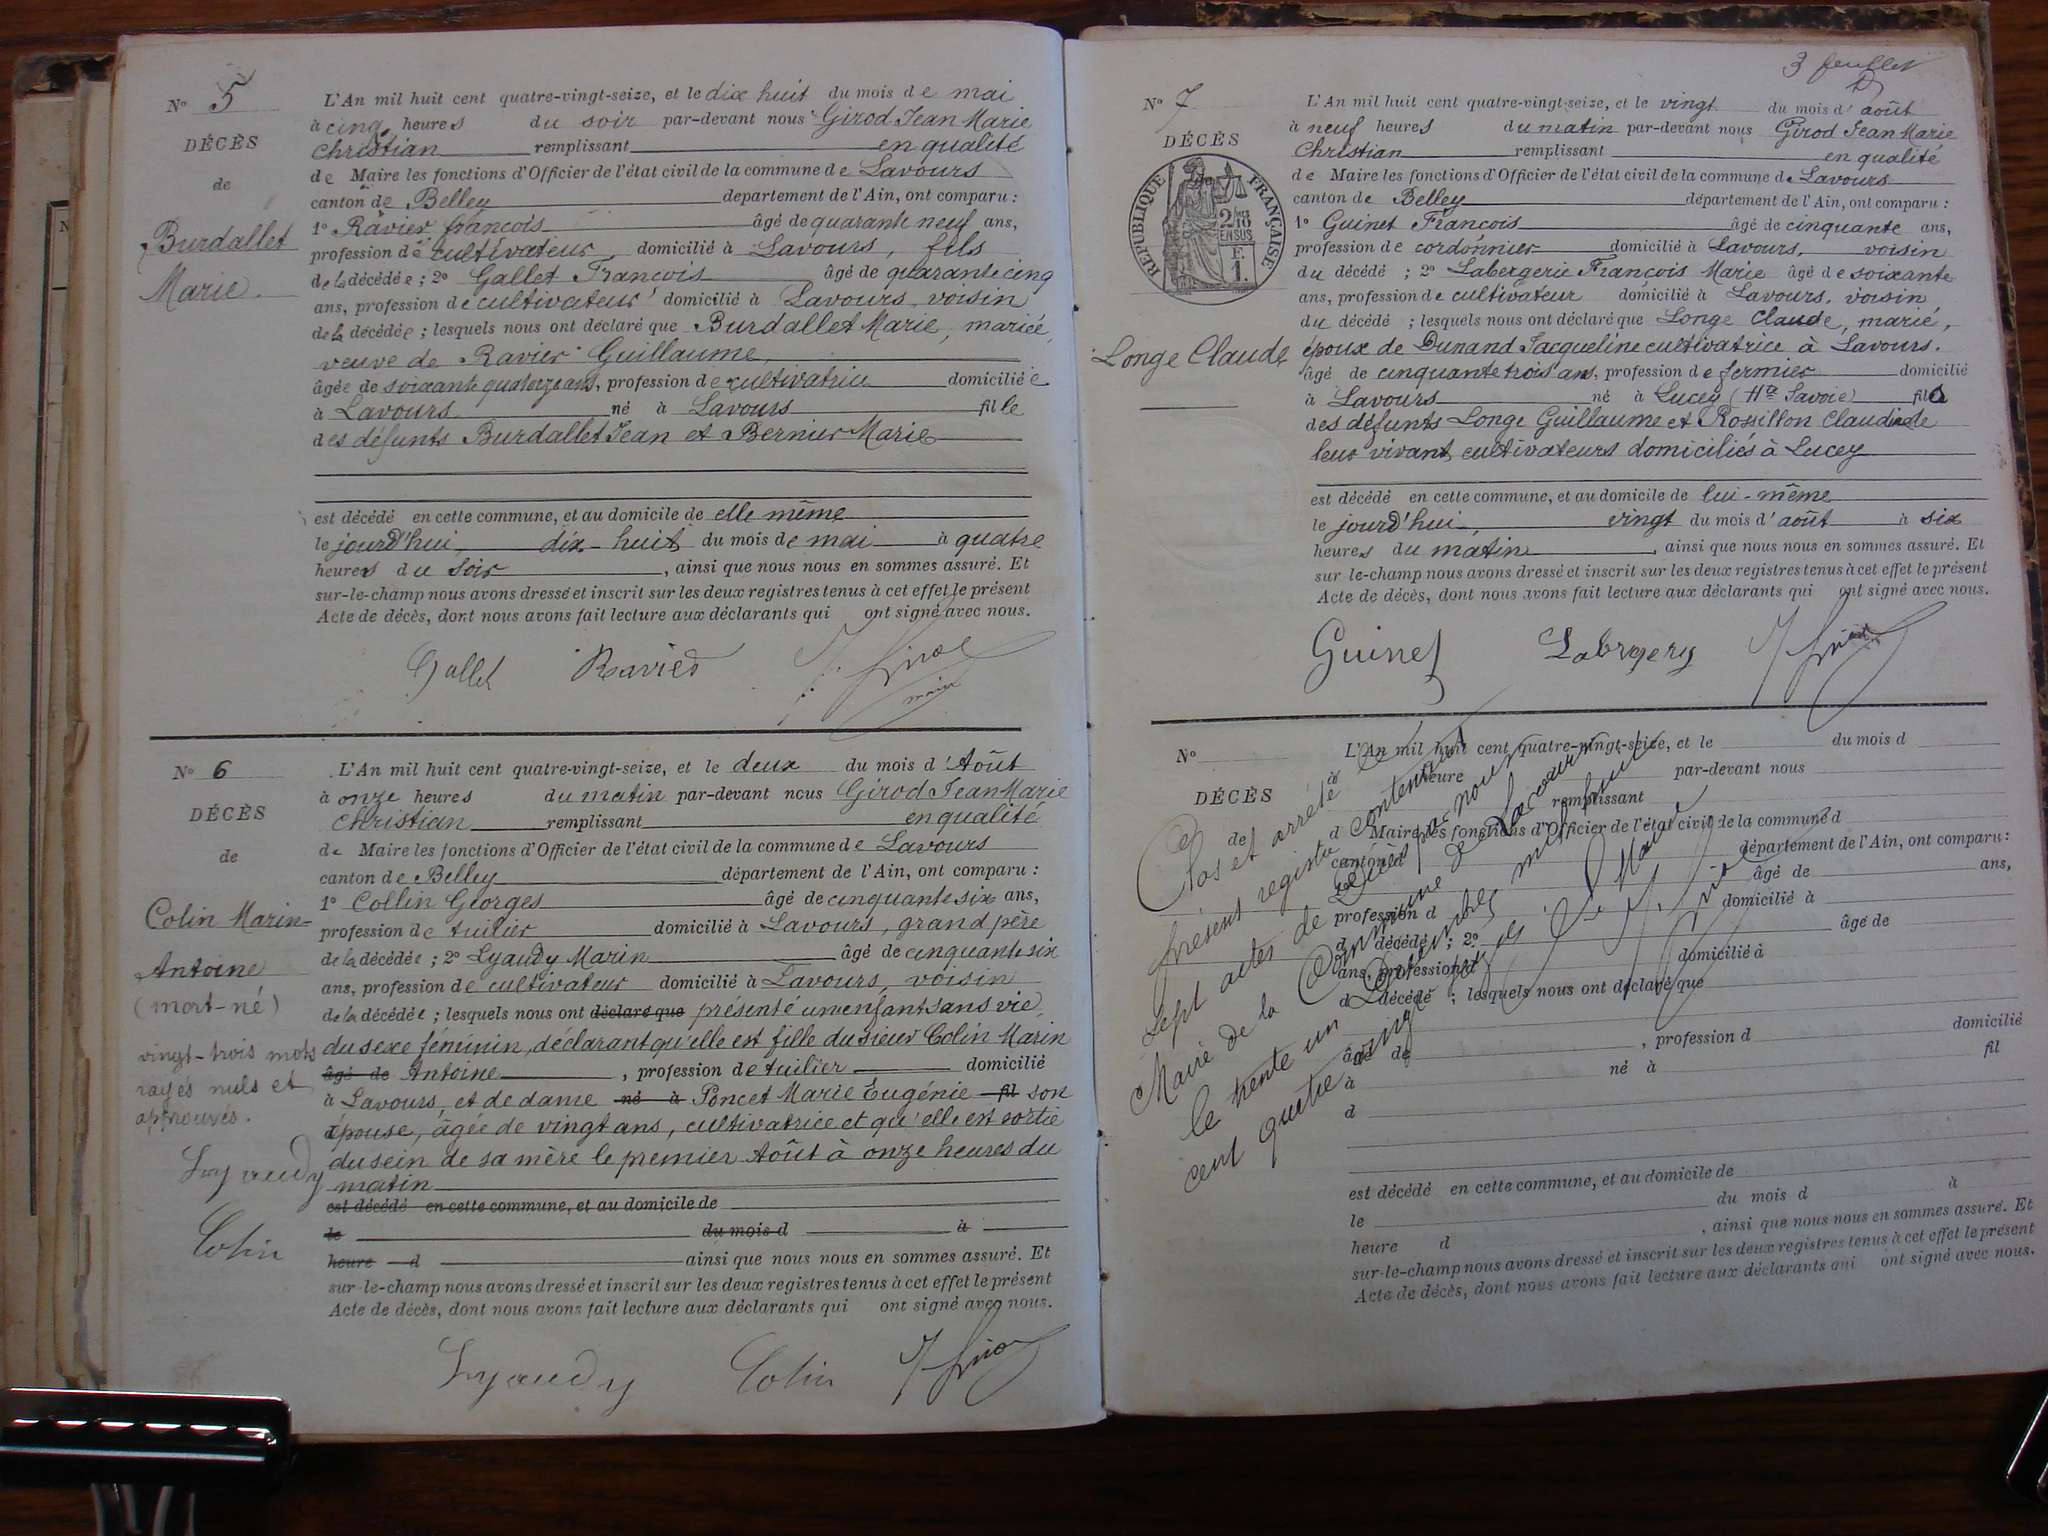 N° 5
DÉCÈS
de
Burdallet
Marie.
L'An mil huit cent quatre-vingt-seize, et le dix huit du mois de mai
à cinq heures du soir par-devant nous Girod Jean Marie
Christian remplissant en qualité
de Maire les fonctions d'Officier de l'état civil de la commune de Lavours
canton de Belley département de l'Ain, ont comparu :
1° Ravier françois âgé de quarante neuf ans,
profession de cultivateur domicilié à Lavours, fils
de la décédée ; 2° Gallet François âgé de quarante cinq
ans, profession de cultivateur domicilié à Lavours voisin
de la décédée ; lesquels nous ont déclaré que Burdallet Marie, mariée,
veuve de Ravier Guillaume,
âgée de soixante quatorze ans, profession de cultivatrice domiciliée
à Lavours né à Lavours fille
des défunts Burdallet Jean et Bernier Marie
est décédé en cette commune, et au domicile de elle même
le jourd'hui dix-huit du mois de mai à quatre
heures du soir, ainsi que nous nous en sommes assuré. Et
sur-le-champ nous avons dressé et inscrit sur les deux registres tenus à cet effet le présent
Acte de décès, dont nous avons fait lecture aux déclarants qui ont signé avec nous.
Gallet Ravier J. Girod
maire
N° 6
DÉCÈS
de
Colin Marin-
Antoine
(mort-né)
vingt-trois mots
rayés nuls et
approuvés.
Lyaudy
Colin
L'An mil huit cent quatre-vingt-seize, et le deux du mois d'Août
à onze heures du matin par-devant nous Girod Jean Marie
Christian remplissant en qualité
de Maire les fonctions d'Officier de l'état civil de la commune de Lavours
canton de Belley département de l'Ain, ont comparu :
1° Collin Georges âgé de cinquante six ans,
profession de tuilier domicilié à Lavours, grand père
de la décédée ; 2° Lyaudy Marin âgé de cinquante six
ans, profession de cultivateur domicilié à Lavours, voisin
de la décédée ; lesquels nous ont déclaré que présenté un enfant sans vie,
du sexe féminin, déclarant qu'elle est fille du sieur Colin Marin
âgé de Antoine, profession de tuilier domicilié
à Lavours, et de dame né à Poncet Marie Eugénie fil son
épouse, âgée de vingt ans, cultivatrice et qu'elle est sortie
du sein de sa mère le premier Août à onze heures du
matin
est décédé en cette commune, et au domicile de
le du mois d à
heure d ainsi que nous nous en sommes assuré. Et
sur-le-champ nous avons dressé et inscrit sur les deux registres tenus à cet effet le présent
Acte de décès, dont nous avons fait lecture aux déclarants qui ont signé avec nous.
Lyaudy Colin J. Girod
3 feuillet
N° 7
DÉCÈS
RÉPUBLIQUE FRANÇAISE
Longe Claude
L'An mil huit cent quatre-vingt-seize, et le vingt du mois d'août
à neuf heures du matin par-devant nous Girod Jean Marie
Christian remplissant en qualité
de Maire les fonctions d'Officier de l'état civil de la commune de Lavours
canton de Belley département de l'Ain, ont comparu :
1° Guinet François âgé de cinquante ans,
profession de cordonnier domicilié à Lavours, voisin
du décédé ; 2° Labergerie François Marie âgé de soixante
ans, profession de cultivateur domicilié à Lavours, voisin
du décédé ; lesquels nous ont déclaré que Longe Claude, marié,
époux de Dunand Jacqueline cultivatrice à Lavours.
âgé de cinquante trois ans, profession de fermier domicilié
à Lavours né à Lucey (Hte Savoie) fils
des défunts Longe Guillaume et Rossillon Claudine
leur vivant cultivateurs domiciliés à Lucey
est décédé en cette commune, et au domicile de lui-même
le jourd'hui vingt du mois d'août à six
heures du matin, ainsi que nous nous en sommes assuré. Et
sur-le-champ nous avons dressé et inscrit sur les deux registres tenus à cet effet le présent
Acte de décès, dont nous avons fait lecture aux déclarants qui ont signé avec nous.
Guinet Labrgery J. Girod
N°
DÉCÈS
de
L'An mil huit cent quatre-vingt-seize, et le du mois d
à heure par-devant nous
remplissant
d Maire les fonctions d'Officier de l'état civil de la commune d
canton d département de l'Ain, ont comparu :
1° âgé de ans,
profession d domicilié à
d décédé ; 2° âgé de
ans, profession d domicilié à
d décédé ; lesquels nous ont déclaré que
âgé de , profession d domicilié
à né à fil
d
est décédé en cette commune, et au domicile de
le du mois d à
heure d , ainsi que nous nous en sommes assuré. Et
sur-le-champ nous avons dressé et inscrit sur les deux registres tenus à cet effet le présent
Acte de décès, dont nous avons fait lecture aux déclarants qui ont signé avec nous.
Clos et arrêté le
présent registre contenant
sept actes de Décès par nous
Maire de la Commune de Lavours
le trente un Décembre mil huit
cent quatre vingt seize
Le Maire
J. Girod